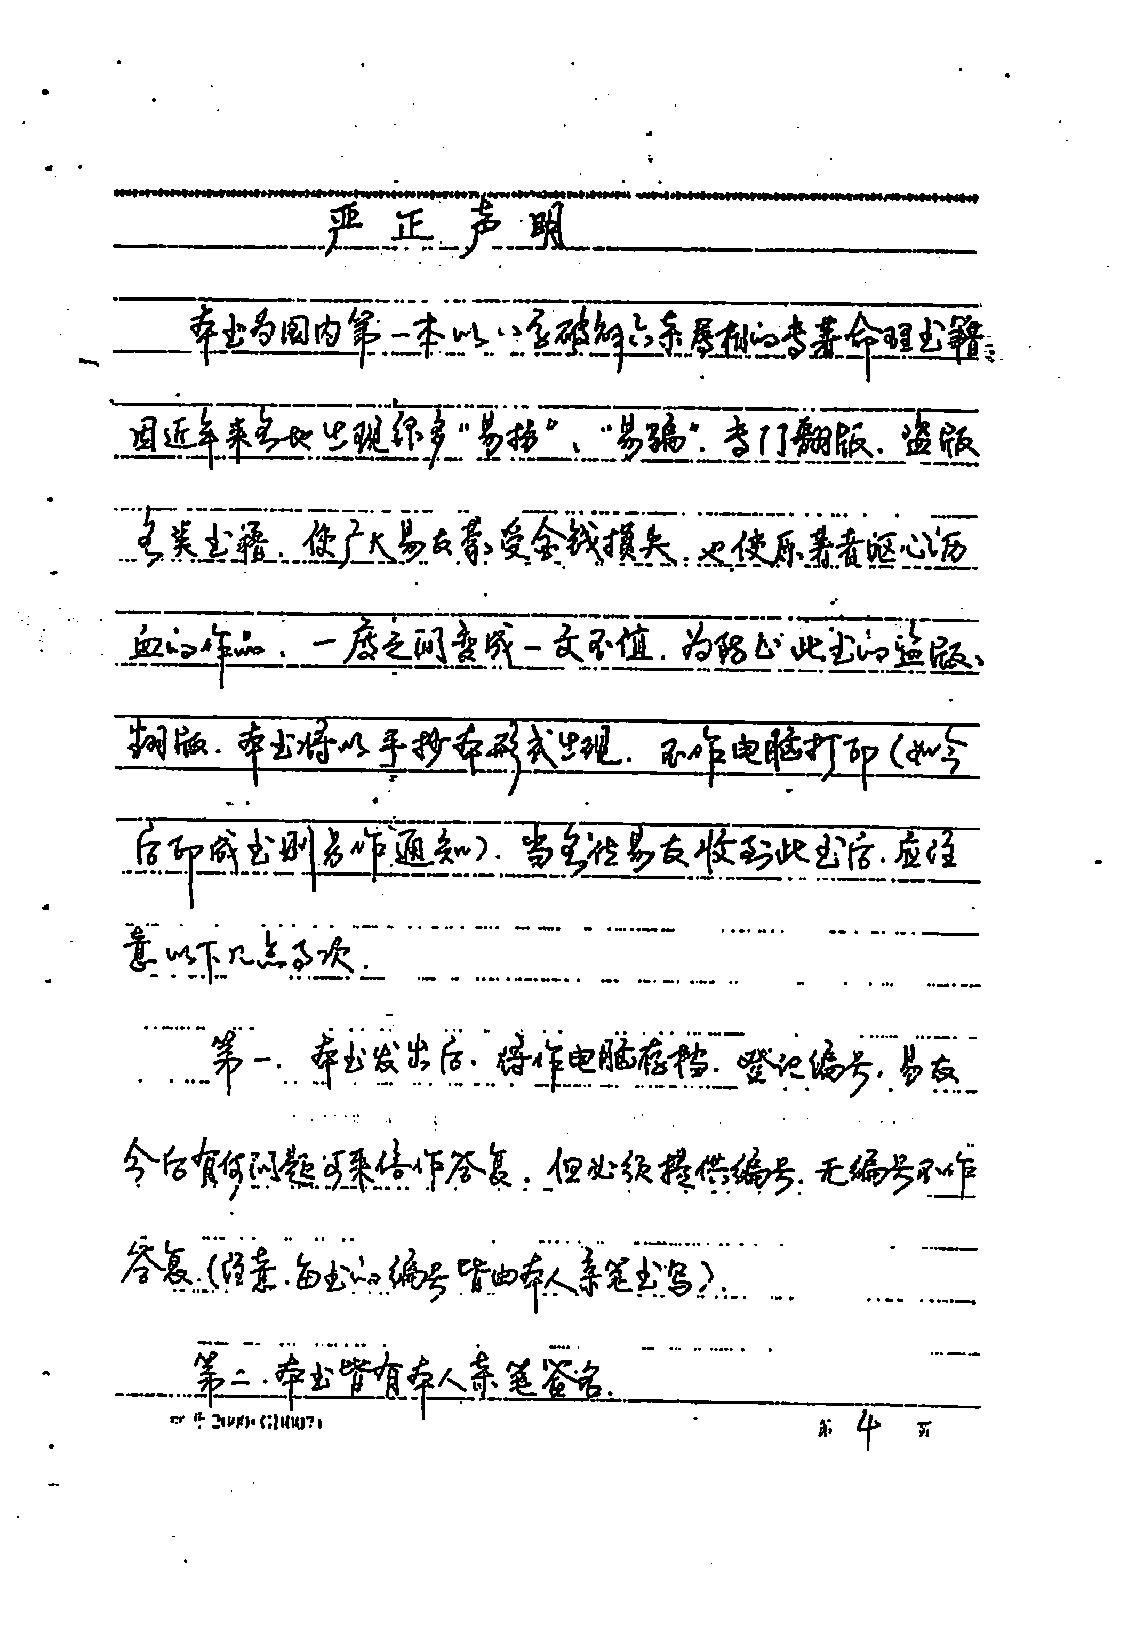 严正声明
本书为国内第一本以八字破解六亲属相的专著命理书籍
因近年来各地出现很多“易扬”、“易骗”.专门翻版.盗版
各类书籍.使广大易友蒙受金钱损失.也使原著者呕心沥
血的作品.一夜之间变成一文不值.为防止此书的盗版、
翻版.本书将以手抄本形式出现.不作电脑打印(如今
后印成书则另作通知).当各位易友收到此书后.应注
意以下几点事次.
第一.本书发出后.将作电脑存档.登记编号.易友
今后有何问题可来信作答复.但必须提供编号.无编号不作
答复.(注意.每书的编号皆由本人亲笔书写).
第二.本书皆有本人亲笔签名.
第 4 页